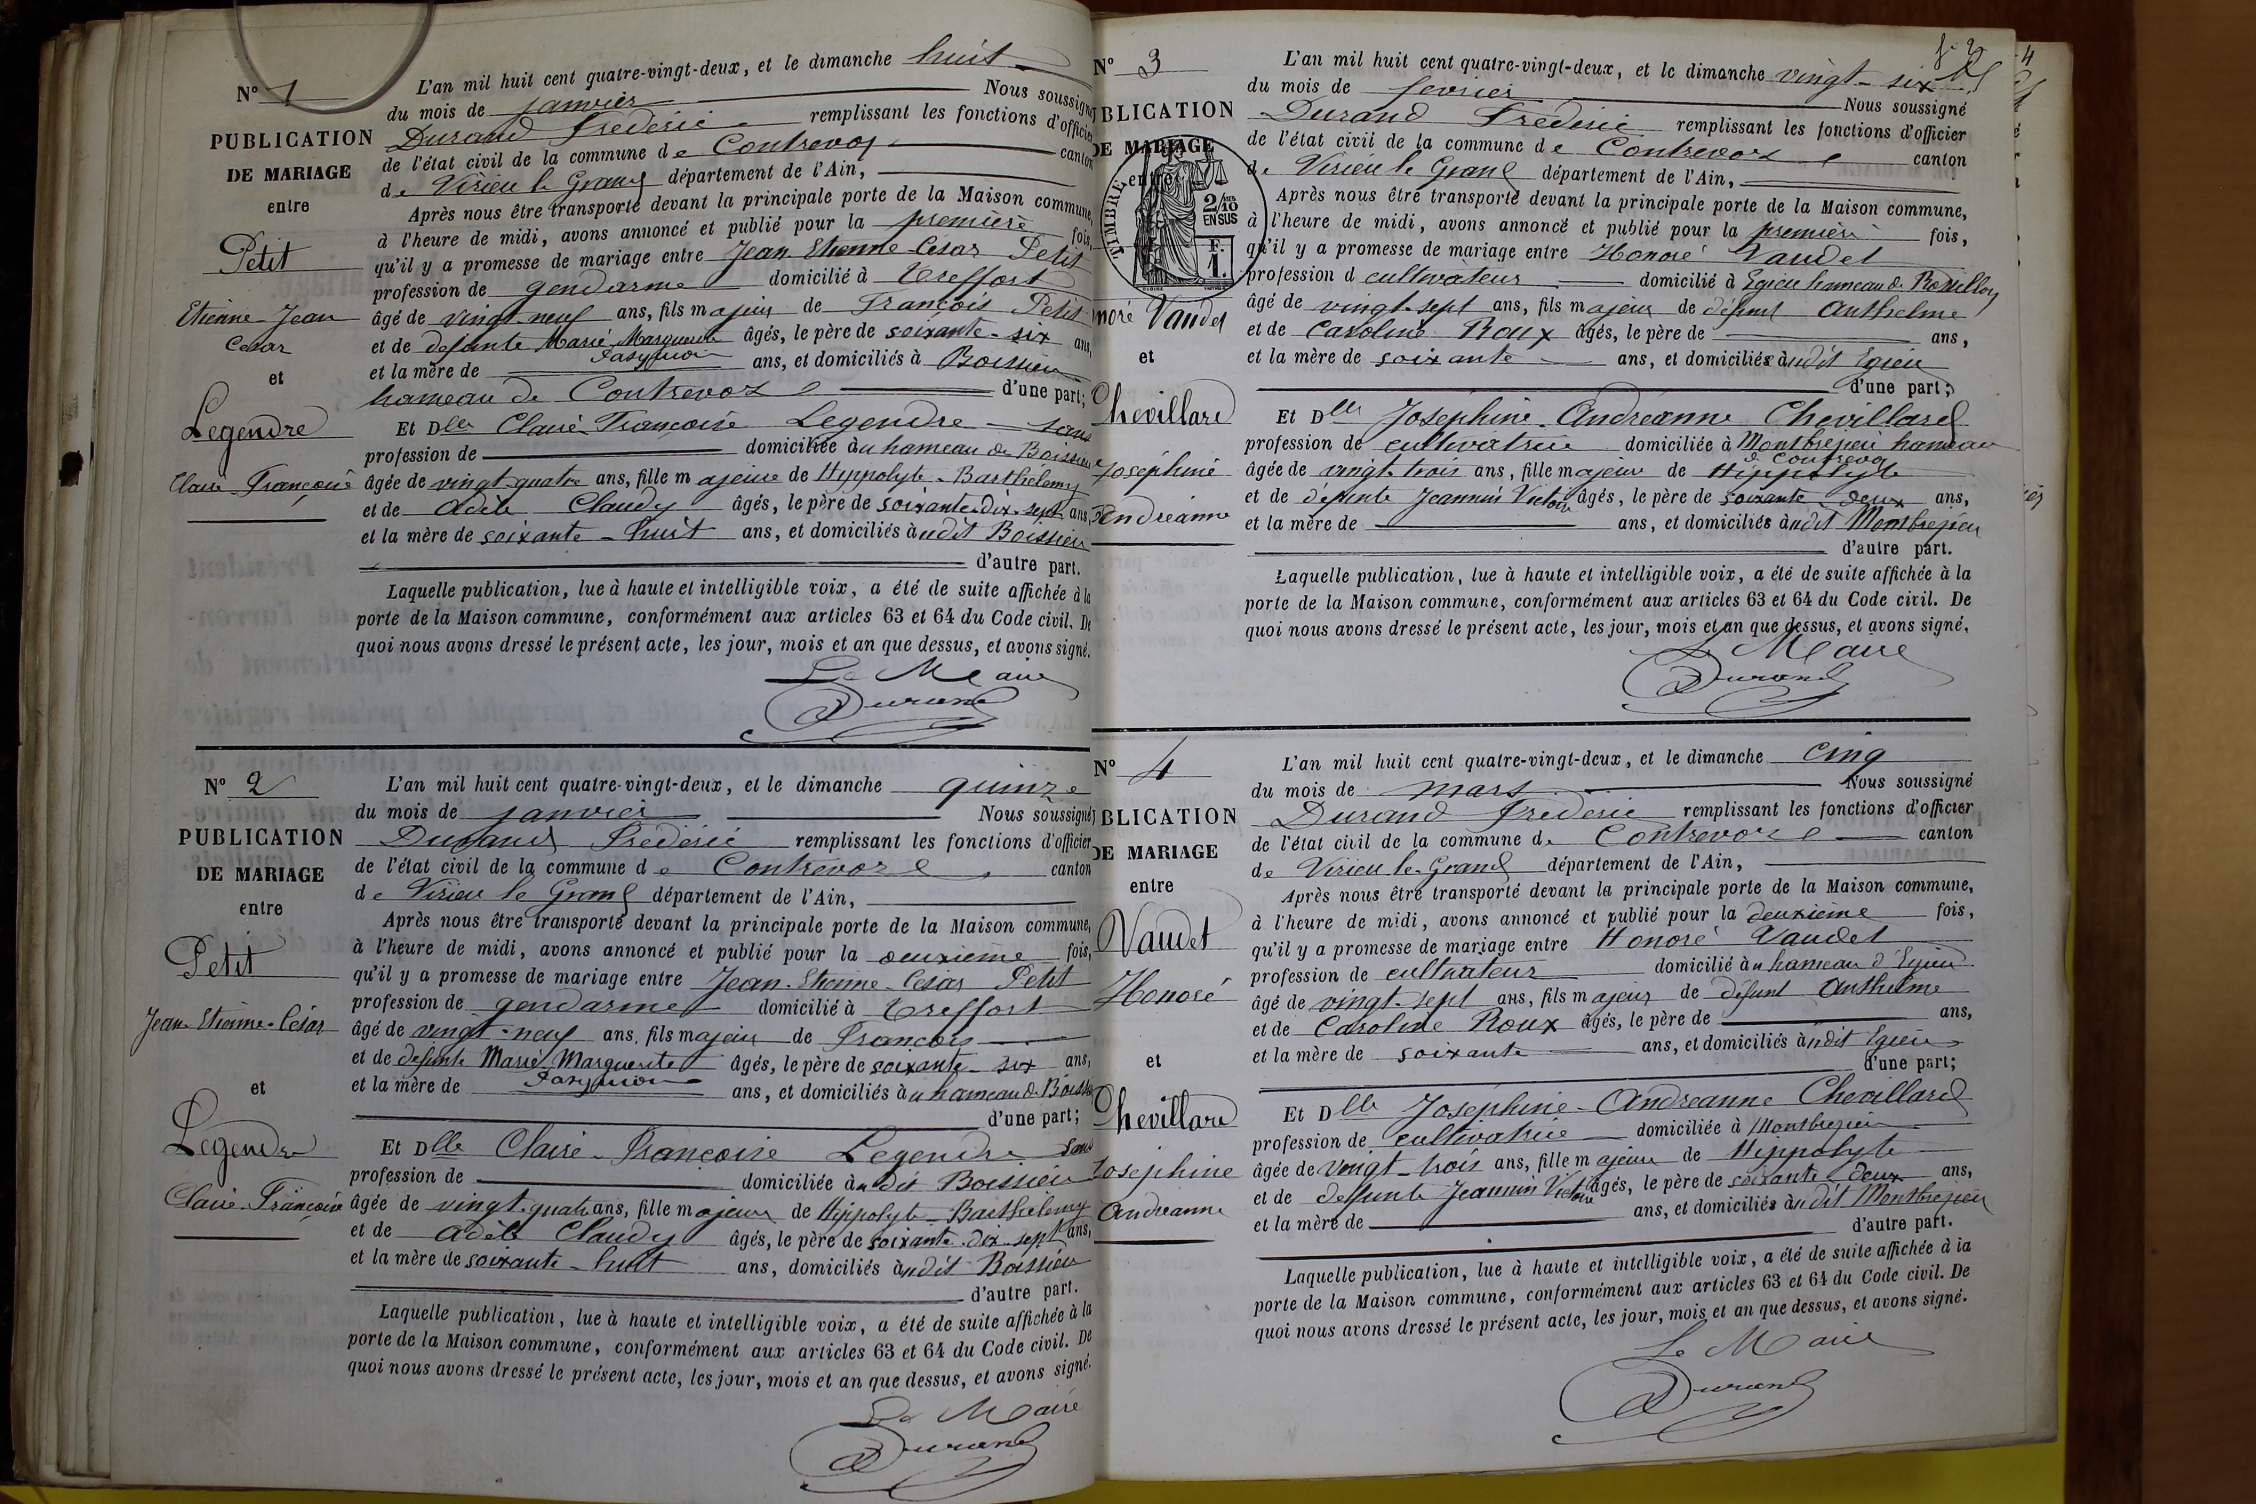 N° 1
PUBLICATION
DE MARIAGE
entre
Petit
Etienne-Jean
Cesar
et
Legendre
Claire-Françoise
L'an mil huit cent quatre-vingt-deux, et le dimanche huit
du mois de janvier Nous soussigné
Durand Frédéric remplissant les fonctions d'officier
de l'état civil de la commune de Contrevoz canton
de Virieu le Grand département de l'Ain,
Après nous être transporté devant la principale porte de la Maison commune,
à l'heure de midi, avons annoncé et publié pour la première fois,
qu'il y a promesse de mariage entre Jean-Etienne-Cesar Petit
profession de gendarme domicilié à Treffort
âgé de vingt-neuf ans, fils majeur de François Petit
et de defunte Marie Marguerite âgés, le père de soixante-six ans,
et la mère de ans, et domiciliés à Boissieu
hameau de Contrevoz d'une part;
Et Dlle Claire-Françoise Legendre sans
profession de domiciliée au hameau de Boissieu
âgée de vingt-quatre ans, fille majeure de Hyppolyte-Barthélemy
et de Adèle Claudy âgés, le père de soixante-dix-sept ans,
et la mère de soixante-huit ans, et domiciliés à udit Boissieu
d'autre part.
Laquelle publication, lue à haute et intelligible voix, a été de suite affichée à la
porte de la Maison commune, conformément aux articles 63 et 64 du Code civil. De
quoi nous avons dressé le présent acte, les jour, mois et an que dessus, et avons signé.
Le Maire
Durand
N° 2
PUBLICATION
DE MARIAGE
entre
Petit
Jean-Etienne-César
et
Legendre
Claire-Françoise
L'an mil huit cent quatre-vingt-deux, et le dimanche quinze
du mois de janvier Nous soussigné
Durand Frédéric remplissant les fonctions d'officier
de l'état civil de la commune de Contrevoz canton
de Virieu le Grand département de l'Ain,
Après nous être transporté devant la principale porte de la Maison commune,
à l'heure de midi, avons annoncé et publié pour la deuxième fois,
qu'il y a promesse de mariage entre Jean-Etienne-Cesar Petit
profession de gendarme domicilié à Treffort
âgé de vingt-neuf ans, fils majeur de François
et de defunte Marie Marguerite âgés, le père de soixante-six ans,
et la mère de ans, et domiciliés à u hameau de
d'une part;
Et Dlle Claire-Françoise Legendre sans
profession de domiciliée à udit Boissieu
âgée de vingt-quatre ans, fille majeure de Hippolyte-Barthélemy
et de Adèle Claudy âgés, le père de soixante-dix-sept ans,
et la mère de soixante-huit ans, domiciliés à udit Boissieu
d'autre part.
Laquelle publication, lue à haute et intelligible voix, a été de suite affichée à la
porte de la Maison commune, conformément aux articles 63 et 64 du Code civil. De
quoi nous avons dressé le présent acte, les jour, mois et an que dessus, et avons signé.
Le Maire
Durand
N° 3
BLICATION
DE MARIAGE
entre
TIMBRE
2/10
EN SUS
F.
1.
noré Vaudet
et
Chevillard
Joséphine
Andréanne
f. 2
L'an mil huit cent quatre-vingt-deux, et le dimanche vingt-six
du mois de février Nous soussigné
Durand Frédéric remplissant les fonctions d'officier
de l'état civil de la commune de Contrevoz canton
de Virieu le Grand département de l'Ain,
Après nous être transporté devant la principale porte de la Maison commune,
à l'heure de midi, avons annoncé et publié pour la première fois,
qu'il y a promesse de mariage entre Honoré Vaudet
profession d cultivateur domicilié à Egieu hameau de Rossillon
âgé de vingt-sept ans, fils majeur de défunt Anthelme
et de Caroline Roux âgés, le père de ans,
et la mère de soixante ans, et domiciliés à udit Egieu
d'une part;
Et Dlle Joséphine-Andréanne Chevillard
profession de cultivatrice domiciliée à Montbrezieu hameau
de Contrevoz
âgée de vingt-trois ans, fille majeure de Hippolyte
et de défunte Jeannin Victoire âgés, le père de soixante-deux ans,
et la mère de ans, et domiciliés à udit Montbrezieu
d'autre part.
Laquelle publication, lue à haute et intelligible voix, a été de suite affichée à la
porte de la Maison commune, conformément aux articles 63 et 64 du Code civil. De
quoi nous avons dressé le présent acte, les jour, mois et an que dessus, et avons signé.
Le Maire
Durand
N° 4
BLICATION
DE MARIAGE
entre
Vaudet
Honoré
et
Chevillard
Joséphine
Andréanne
L'an mil huit cent quatre-vingt-deux, et le dimanche cinq
du mois de mars Nous soussigné
Durand Frédéric remplissant les fonctions d'officier
de l'état civil de la commune de Contrevoz canton
de Virieu-le-Grand département de l'Ain,
Après nous être transporté devant la principale porte de la Maison commune,
à l'heure de midi, avons annoncé et publié pour la deuxième fois,
qu'il y a promesse de mariage entre Honoré Vaudet
profession de cultivateur domicilié à u hameau d'Egieu
âgé de vingt-sept ans, fils majeur de défunt Anthelme
et de Caroline Roux âgés, le père de ans,
et la mère de soixante ans, et domiciliés à udit Egieu
d'une part;
Et Dlle Joséphine-Andréanne Chevillard
profession de cultivatrice domiciliée à Montbrezieu
âgée de vingt-trois ans, fille majeure de Hippolyte
et de defunte Jeannin Victoire âgés, le père de soixante-deux ans,
et la mère de ans, et domiciliés à udit Montbrezieu
d'autre part.
Laquelle publication, lue à haute et intelligible voix, a été de suite affichée à la
porte de la Maison commune, conformément aux articles 63 et 64 du Code civil. De
quoi nous avons dressé le présent acte, les jour, mois et an que dessus, et avons signé.
Le Maire
Durand